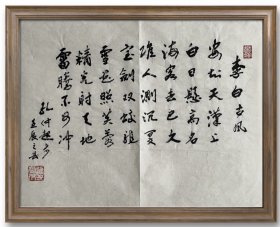 李白古风
安知天漢上
白日懸高名
海客去已久
谁人測沉冥
宝劍双蛟龍
雪花照芙蓉
精光射天地
雷騰不可冲
孔仲起
壬辰之